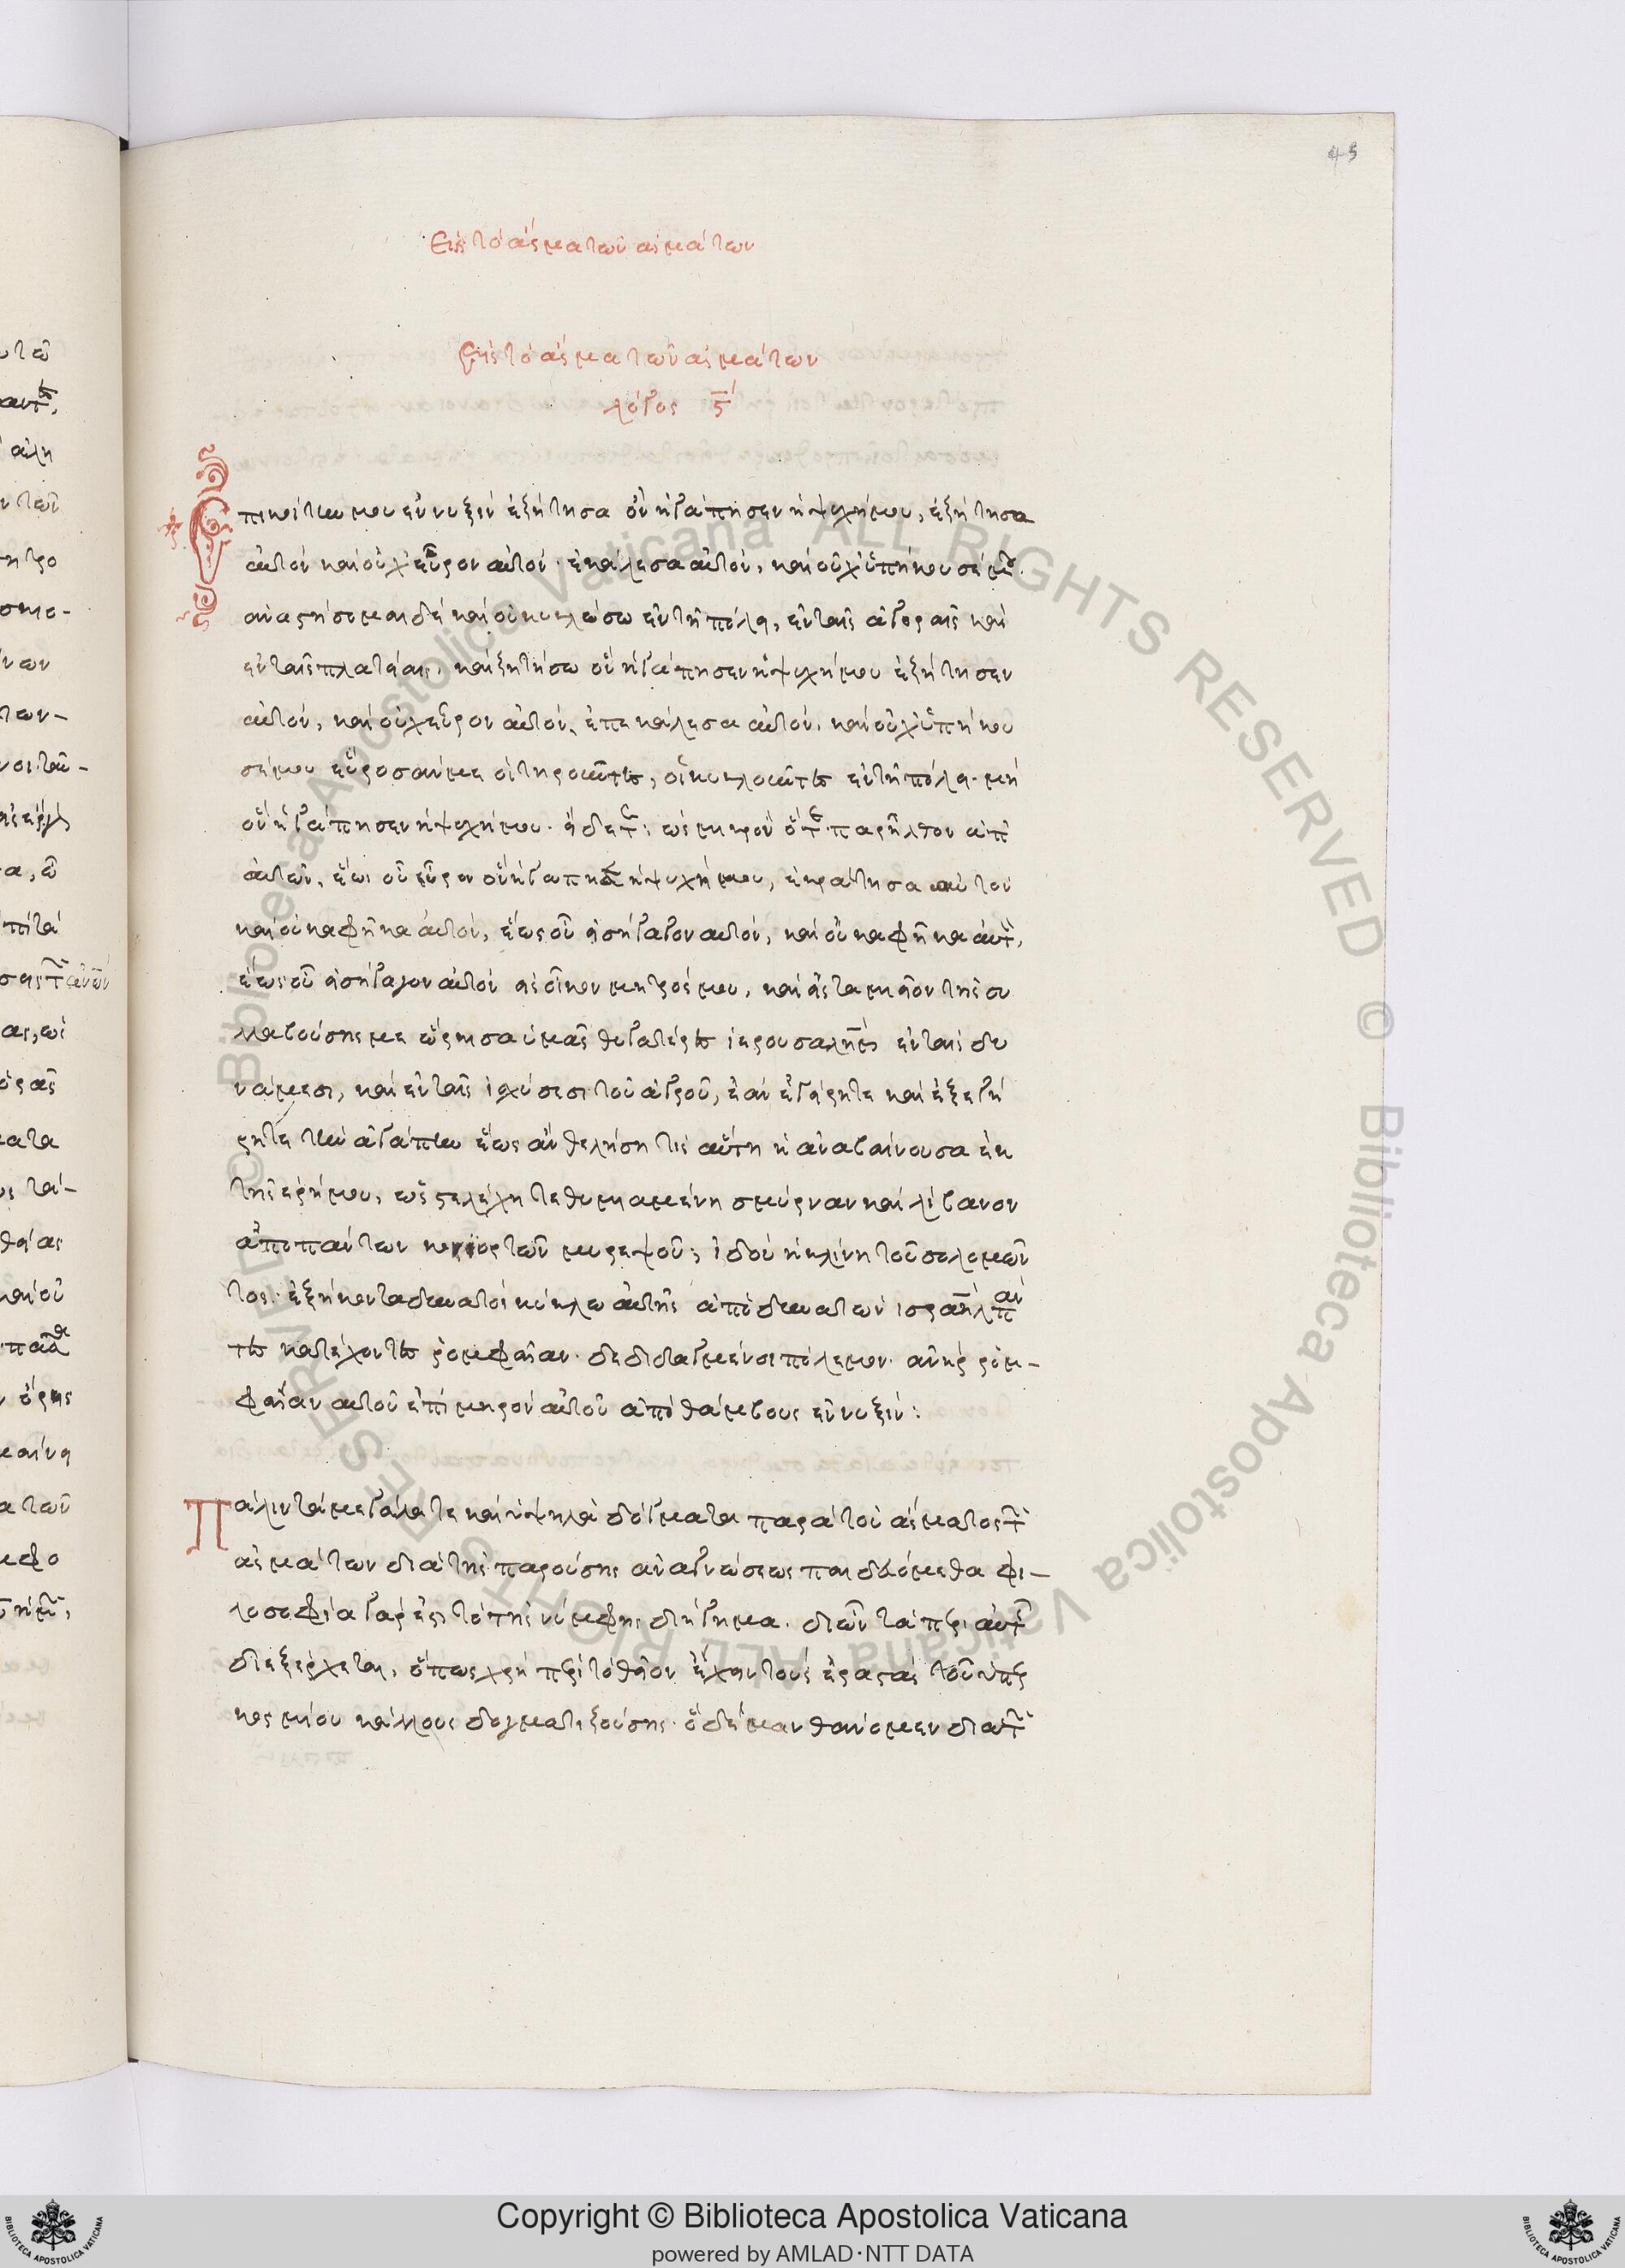 45
Εἰς τὸ ἆσμα τῶν ἀσμάτων
Εἰς τὸ ἆσμα τῶν ἀσμάτων
λόγος ϛ´
Ἐπὶ κοίτην μου ἐν νυξὶν ἐξήτησα ὃν ἠγάπησεν ἡ ψυχή μου, ἐξήτησα
αὐτὸν καὶ οὐχ εὗρον αὐτόν· ἐκάλεσα αὐτόν, καὶ οὐχ ὑπήκουσέ μου.
ἀναστήσομαι δὴ καὶ οὐ κυκλώσω ἐν τῇ πόλει, ἐν ταῖς ἀγοραῖς καὶ
ἐν ταῖς πλατείαις, καὶ ζητήσω ὃν ἠγάπησεν ἡ ψυχή μου ἐζήτησεν
αὐτόν, καὶ οὐχ εὗρον αὐτόν, ἐπεκάλεσα αὐτόν, καὶ οὐχ ὑπήκου
σέ μου εὕροσάν με οἱ τηροῦντες, οἱ κυκλοῦντες ἐν τῇ πόλει· μὴ
ὃν ἠγάπησεν ἡ ψυχή μου· εἴδετε; ὡς μικρὸν ὅτε παρῆλθον ἀπ'
αὐτῶν, ἕως οὗ εὗρον ὃν ἠγάπησεν ἡ ψυχή μου, ἐκράτησα αὐτὸν
καὶ οὐκ ἀφῆκα αὐτόν, ἕως οὗ εἰσήγαγον αὐτόν, καὶ οὐκ ἀφῆκα αὐτ,
ἕως οὗ εἰσήγαγον αὐτὸν εἰς οἶκον μητρός μου, καὶ εἰς ταμεῖον τῆς συ
λλαβούσης με ὥρκισα ὑμᾶς θυγατέρες ἱερουσαλὴμ ἐν ταῖς δυ
νάμεσι, καὶ ἐν ταῖς ἰσχύσεσι τοῦ ἀγροῦ, ἐὰν ἐγείρητε καὶ ἐξεγεί
ρητε τὴν ἀγάπην ἕως ἂν θελήσῃ τίς αὕτη ἡ ἀναβαίνουσα ἐκ
τῆς ἐρήμου, ὡς στελέχη τεθυμιαμένη σμύρναν καὶ λίβανον
ἀπὸ πάντων κονιορτῶν μυρεψοῦ; ἰδοὺ ἡ κλίνη τοῦ σολομῶν
τος· ἐξήκοντα δυνατοὶ κύκλω αὐτῆς ἀπὸ δυνατῶν ισραηλ πάν
τες κατέχοντες ῥομφαίαν· δεδιδαγμένοι πόλεμον· ἀνὴρ ῥομ-
φαίαν αὐτοῦ ἐπὶ μηρὸν αὐτοῦ ἀπὸ θάμβους ἐν νυξίν:
Πάλιν τὰ μεγάλα τε καὶ ὑψηλὰ δόγματα παρὰ τοῦ ἄσματος τῶν
ἀσμάτων διὰ τῆς παρούσης ἀναγνώσεως παιδευόμεθα φι-
λοσοφία γάρ ἐστι τὸ τῆς νύμφης διήγημα. δι' ὧν τὰ περὶ αὐτῆς
διεξέρχεται, ὅπως χρὴ περὶ τὸ θεῖον ἔχειν τοὺς ἐραστὰς τοῦ ὑπερ
κοσμίου κάλλους δογματιζούσης· ὃ δὲ μανθάνομεν διὰ τῶν